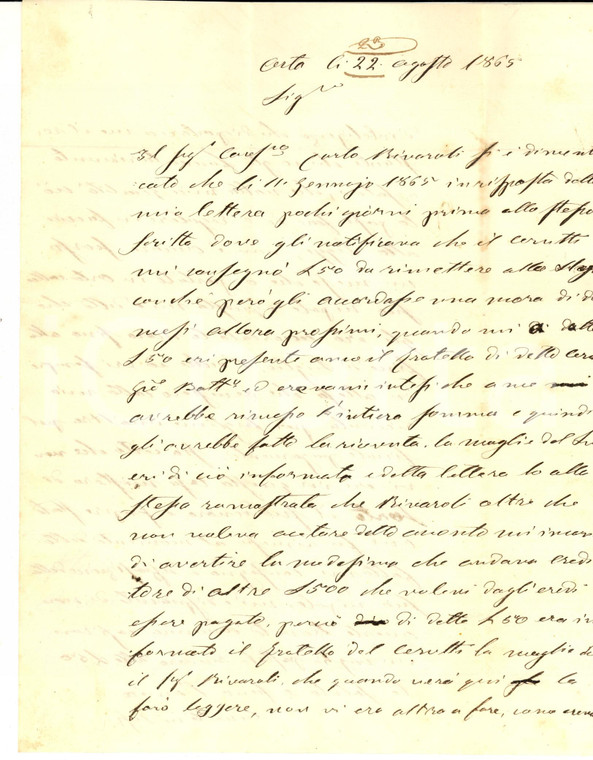 22
Costa li 22. agosto 1865
Sig.r
Il Sig.r Carlo Rivaroli si è dimenti
cato che li 11 Gennajo 1865 in risposta della
mia lettera pochi giorni prima allo stesso
scritta dove gli notificava che il Cerutti
mi consegnò £50 da rimettere allo
però gli accordasse una mora di d
mesi allora prossimi, quando mi di dette
£50 eri presente anco il fratello di detto Ceru
Gio Batt.a, ed eravami intesi che a me
avrebbe rimesso l'intiera somma e quindi
gli avrebbe fatto la ricevuta. la moglie del
eri di ciò informata e della lettera lo alla
stessa ramostrata che Rivaroli oltre che
non voleva acetare detto aconto mi incari
di avertire la medesima che andava credi
tore di altre £500 che voleva dagli eredi
essere pagato, perciò di dette £50 era in
formato il fratello del Cerutti la moglie de
il Sig.r Rivaroli. che quando verà qui la
farò leggere, non vi era altro a fare, come